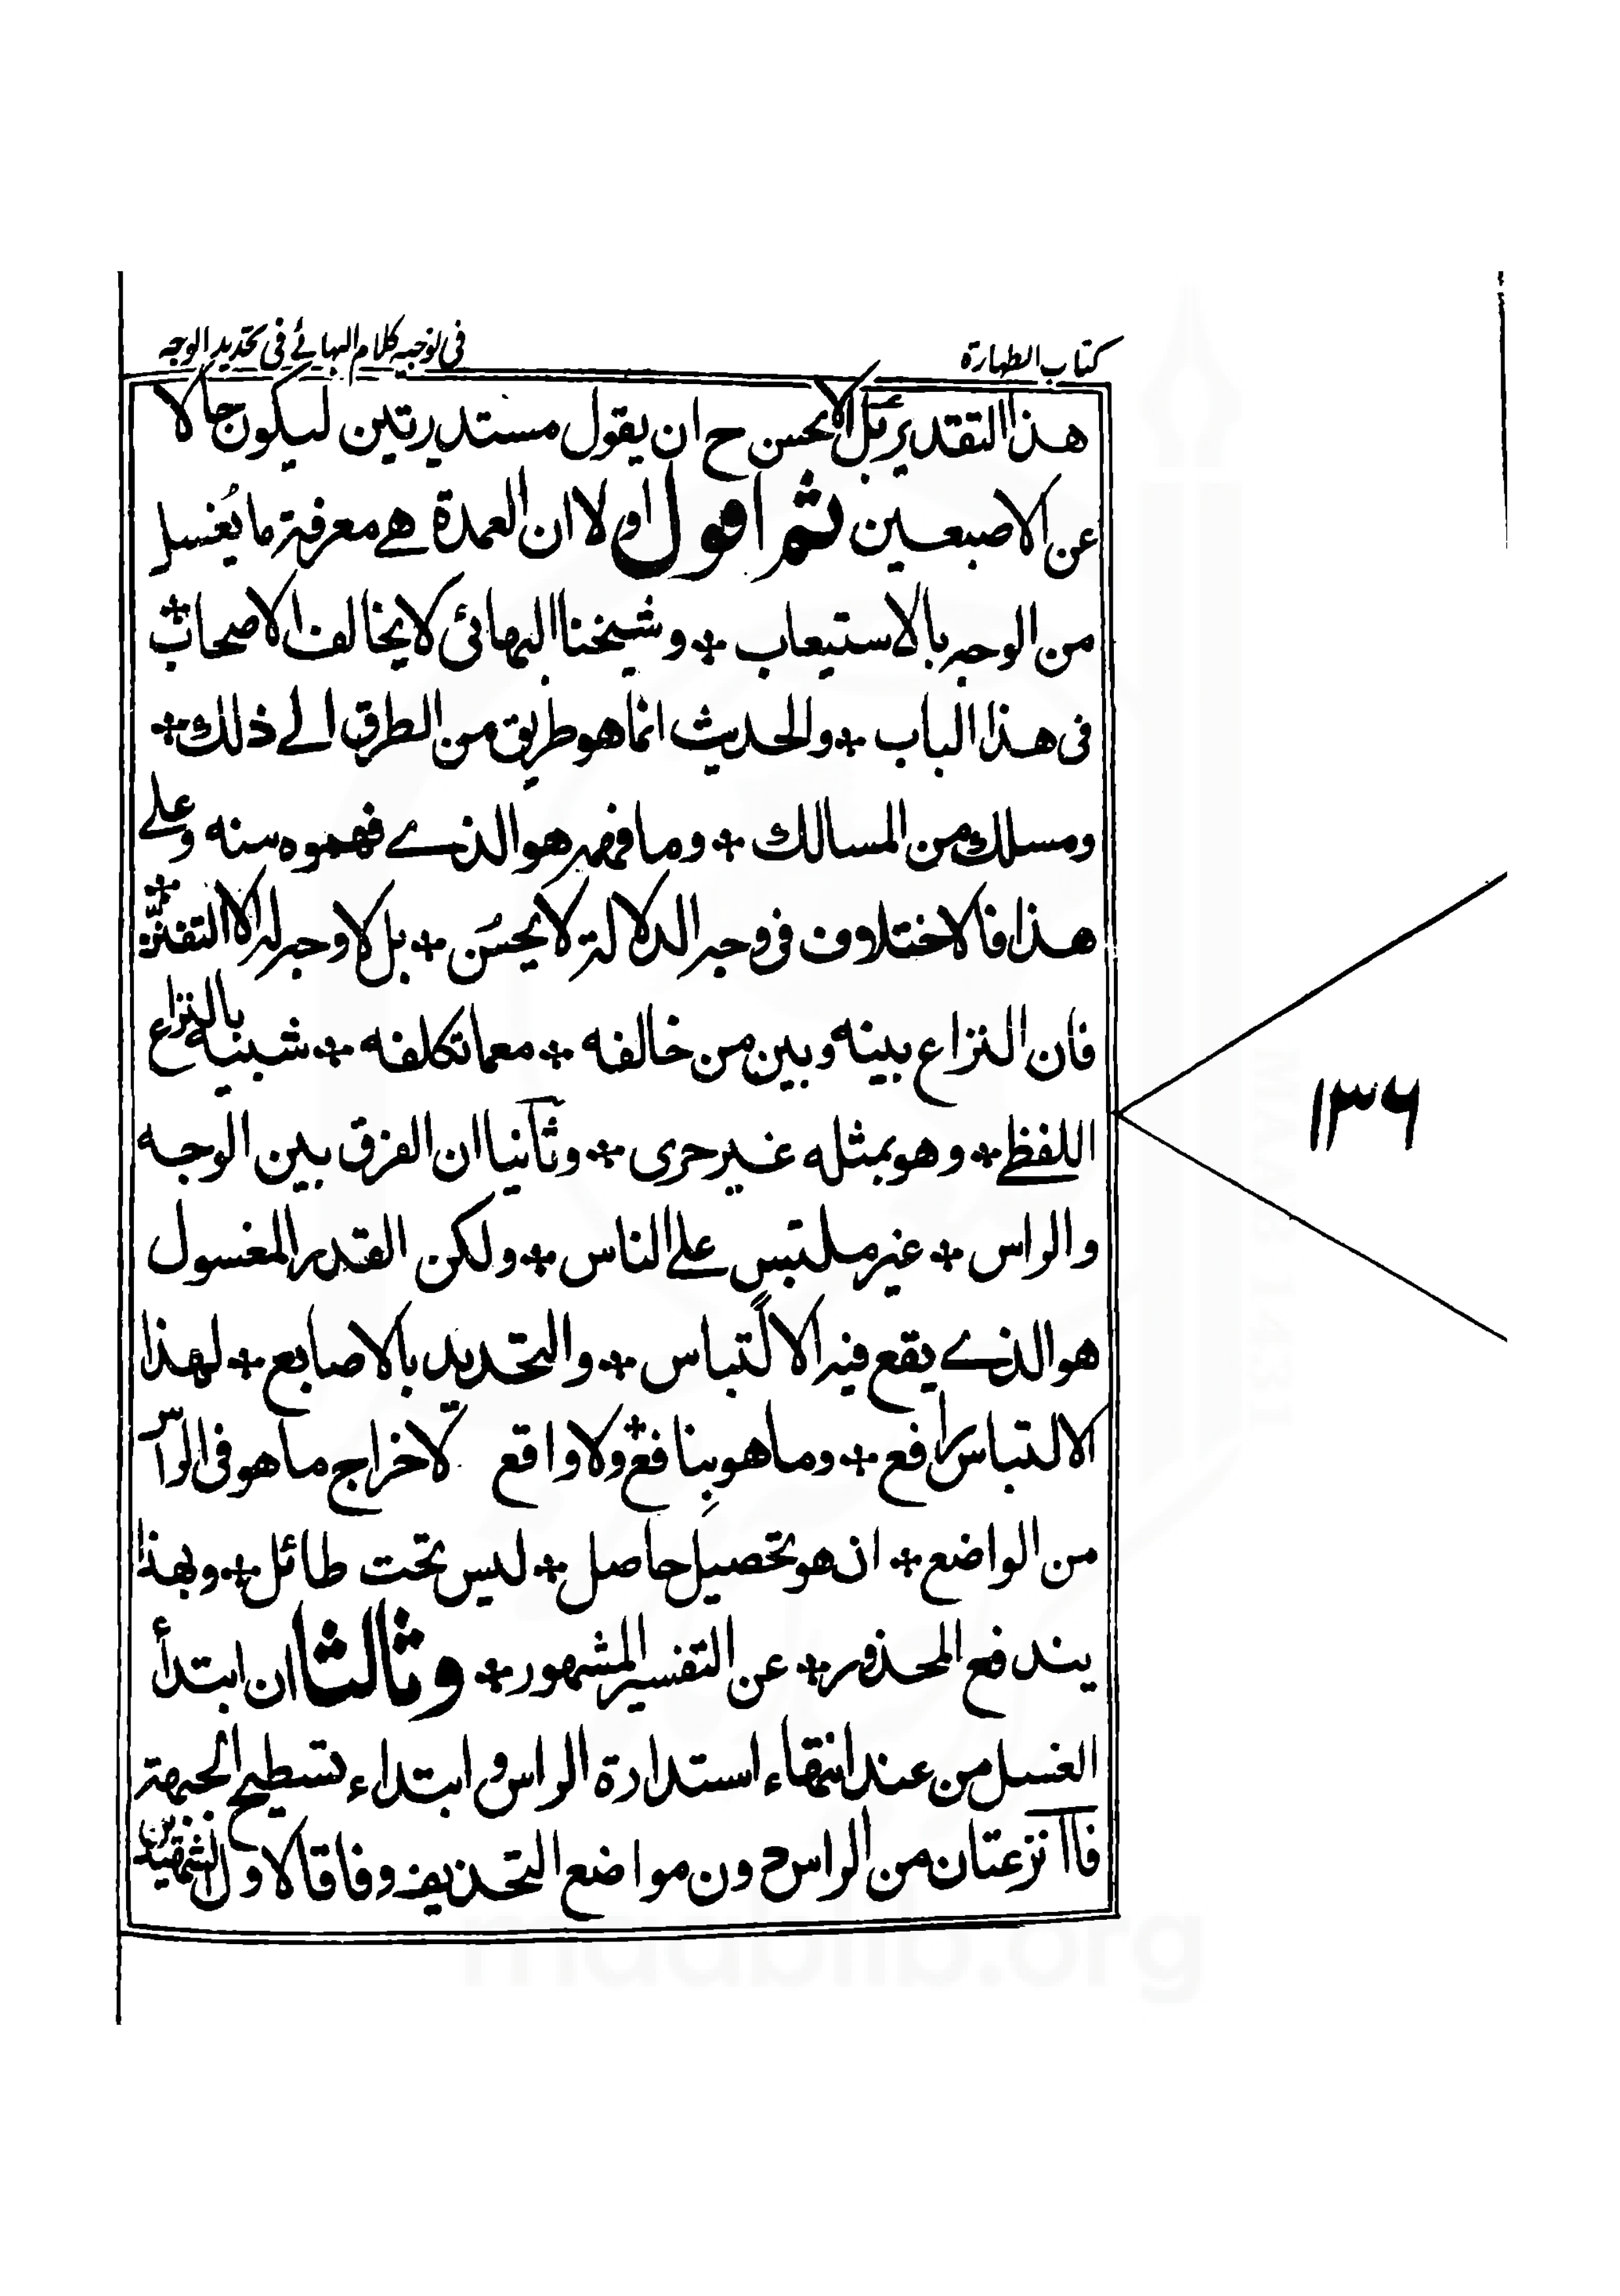 كتاب الطهارة
في توجيه كلام البهائي في تحديد الوجه
هذا التقدير بل الاحسن ح ان يقول مستديرتين ليكون حالا
عن الاصبعين ثم اقول اولا ان العمدة هے معرفة ما يُغسل
من الوجه بالاستيعاب ÷ وشيخنا البهائى لا يخالف الاصحاب ÷
فى هذا الباب ÷ والحديث انما هو طريق من الطرق الے ذلك ÷
ومسلك من المسالك ÷ وما فهمه هو الذے فهموه منه وعلے
هذا فالاختلاف فى وجه الدلالة لا يحسُن ÷ بل لا وجه له الا التفنّن ÷
فان النزاع بينه وبين من خالفه ÷ مع ما تكلفه ÷ شبيه بالنزاع
اللفظے ÷ وهو بمثله غير حرى ÷ وثانيا ان الفرق بين الوجه
والراس ÷ غير ملتبس علے الناس ÷ ولكن القدر المغسول
هو الذے يقع فيه الالتباس ÷ والتحديد بالاصابع ÷ لهذا
الالتباس رافع ÷ وما هو بِنافع ÷ ولا واقع لاخراج ما هو فى الراس
من الواضع ÷ ان هو تحصيل حاصل ÷ ليس تحت طائل ÷ وبهذا
يندفع المحذور ÷ عن التفسير المشهور ÷ وثالثا ان ابتدأ
الغسل من عند انتهاء استدارة الراس و ابتداء تسطيح الجبهة
فالنزعتان من الراس دون مواضع التحذيف وفاقا لاول الشهيدين
١٣٦
maablib.org
MAAB 1431